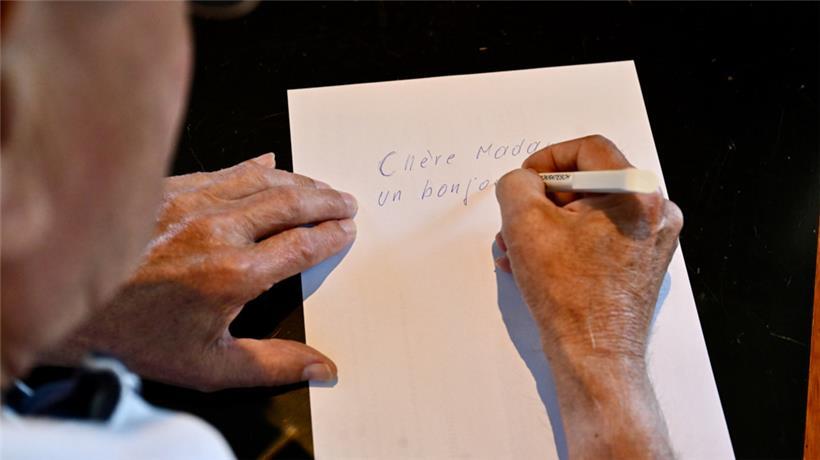 Chère Mada
un bonjo